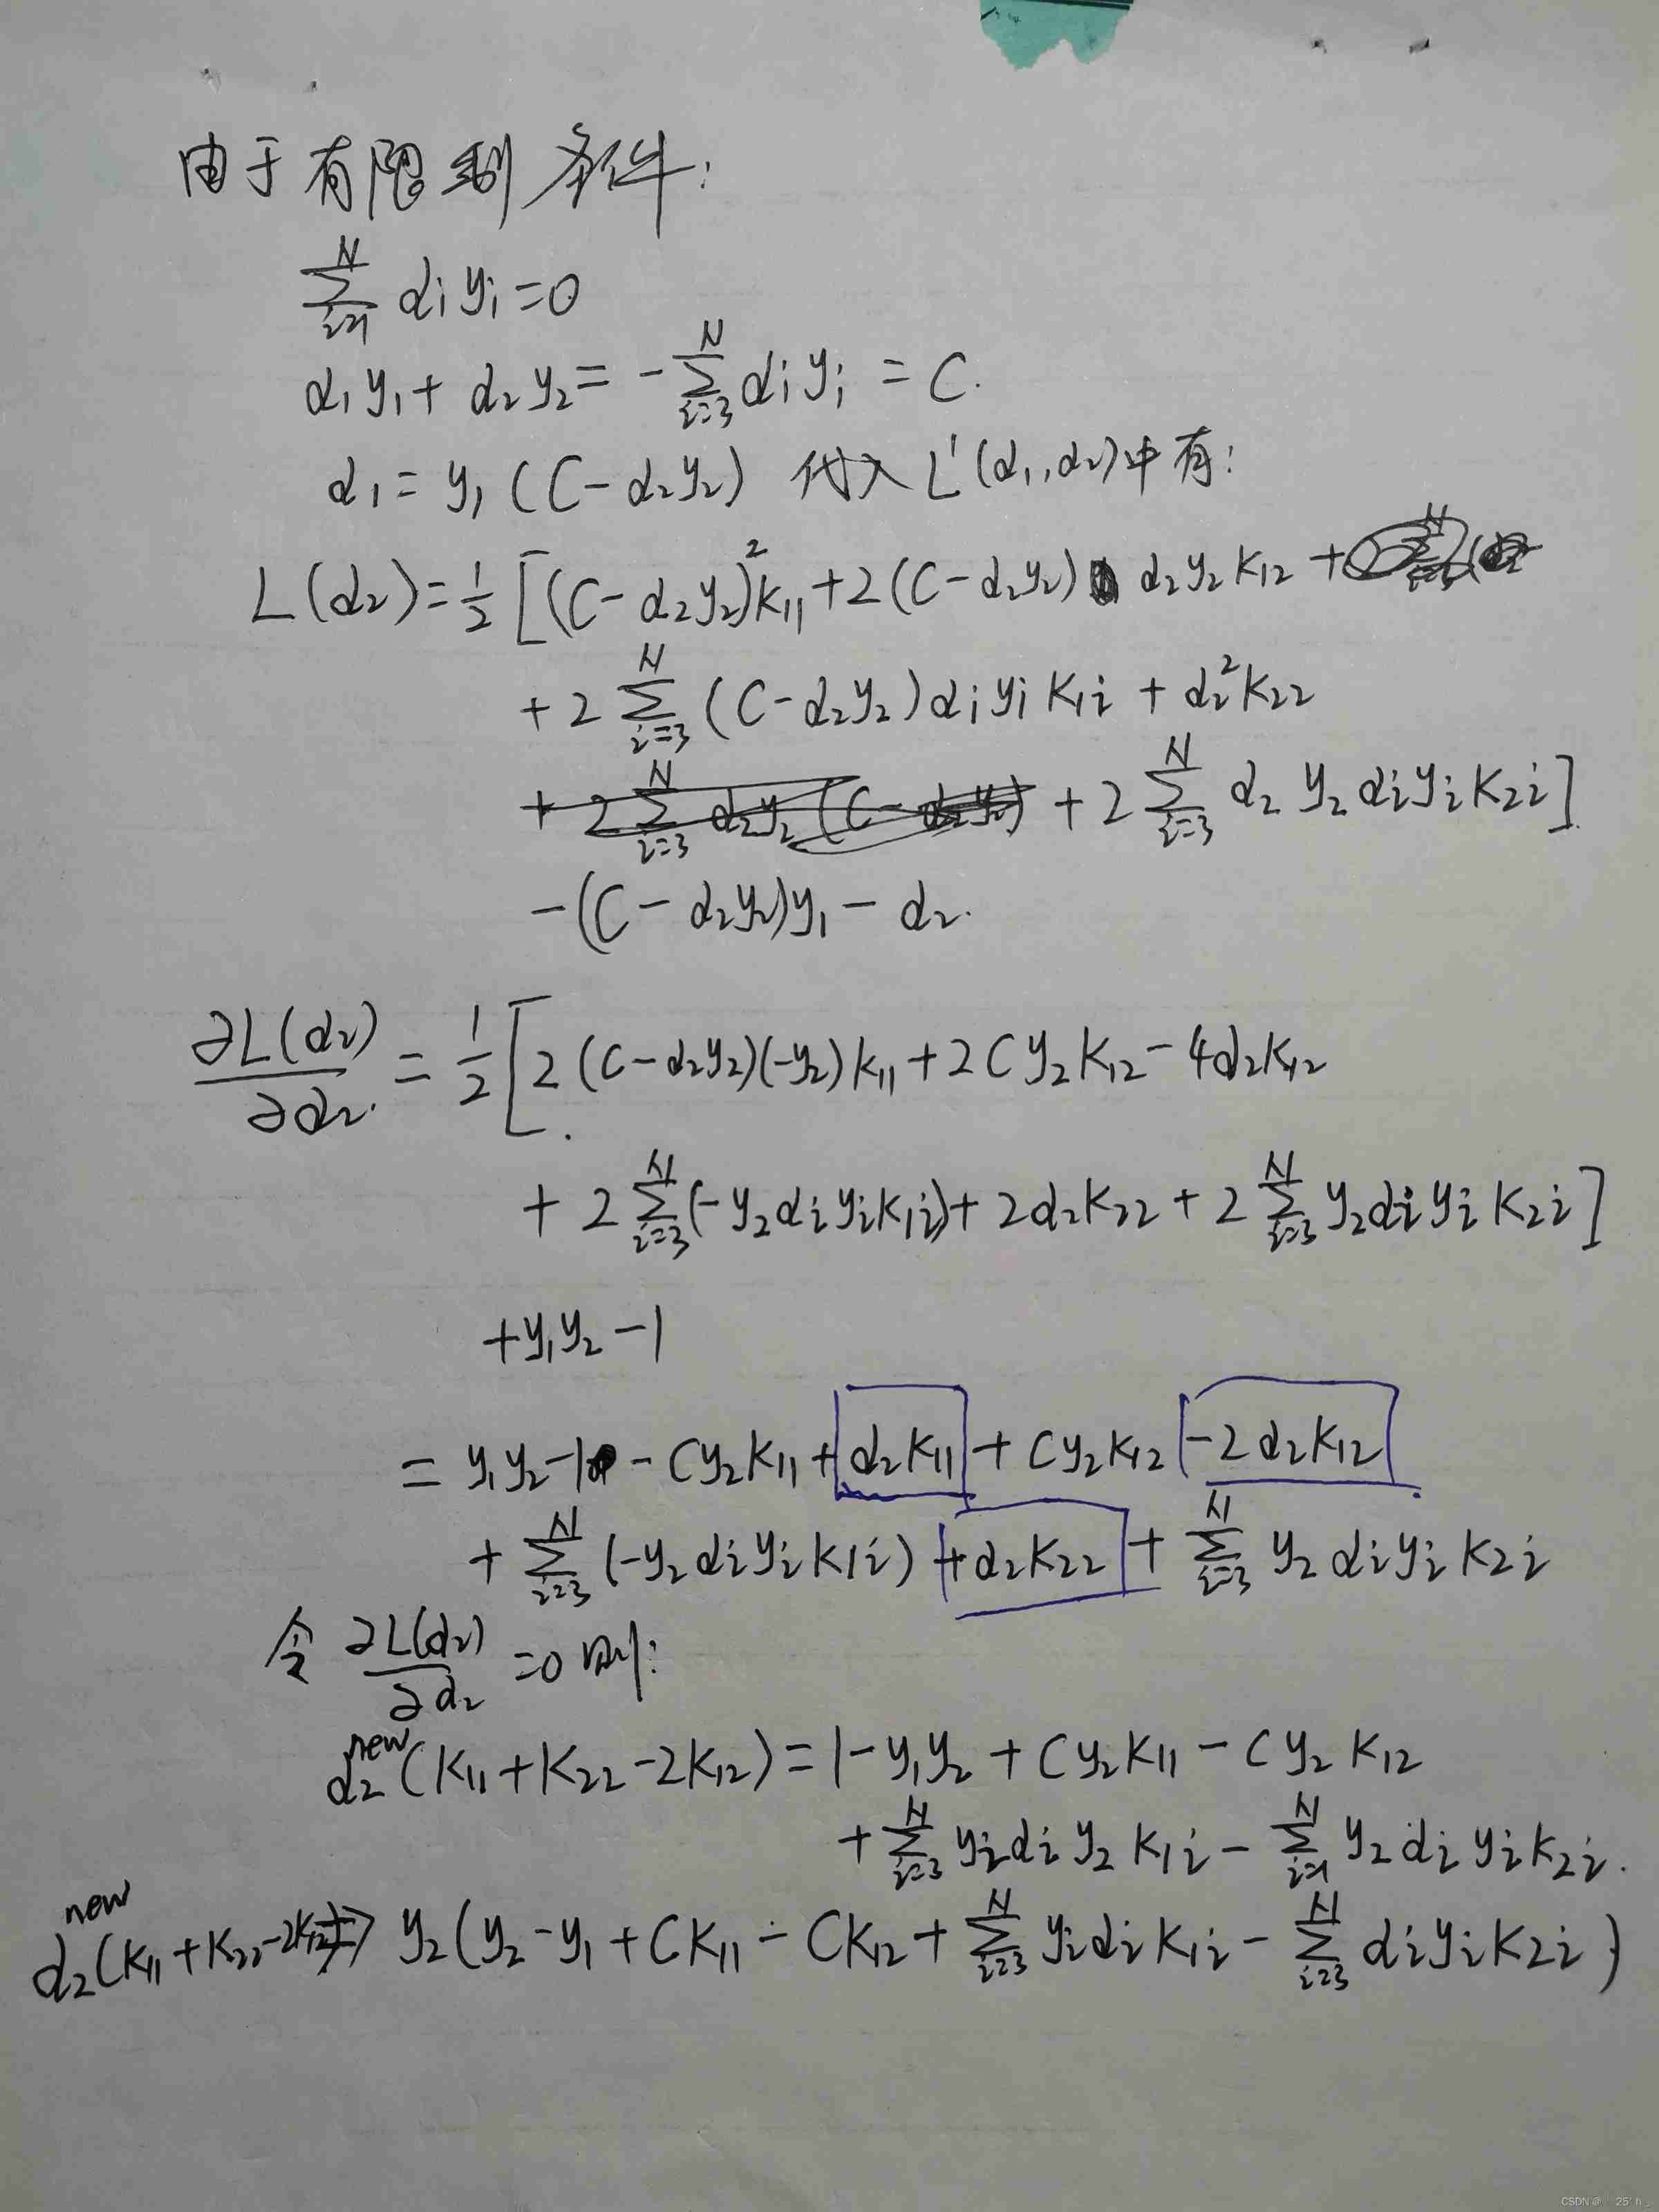 由于有限制条件:
∑_{i=1}^{N} α_i y_i = 0
α_1 y_1 + α_2 y_2 = -∑_{i=3}^{N} α_i y_i = C.
α_1 = y_1 (C - α_2 y_2) 代入 L'(α_1, α_2) 中有:
L(α_2) = 1/2 [(C - α_2 y_2)^2 K_11 + 2(C - α_2 y_2) α_2 y_2 K_12 +
+ 2 ∑_{i=3}^{N} (C - α_2 y_2) α_i y_i K_1i + α_2^2 K_22
+ 2 ∑_{i=3}^{N} α_2 y_2 α_i y_i K_2i]
- (C - α_2 y_2) y_1 - α_2.
∂L(α_2)/∂α_2 = 1/2 [2 (C - α_2 y_2)(-y_2) K_11 + 2C y_2 K_12 - 4α_2 K_12
+ 2 ∑_{i=3}^{N} (-y_2 α_i y_i K_1i) + 2α_2 K_22 + 2 ∑_{i=3}^{N} y_2 α_i y_i K_2i]
+ y_1 y_2 - 1
= y_1 y_2 - 1 - C y_2 K_11 + α_2 K_11 + C y_2 K_12 - 2α_2 K_12
+ ∑_{i=3}^{N} (-y_2 α_i y_i K_1i) + α_2 K_22 + ∑_{i=3}^{N} y_2 α_i y_i K_2i
令 ∂L(α_2)/∂α_2 = 0 则:
α_2^{new} (K_11 + K_22 - 2K_12) = 1 - y_1 y_2 + C y_2 K_11 - C y_2 K_12
+ ∑_{i=3}^{N} y_i α_i y_2 K_1i - ∑_{i=1}^{N} y_2 α_i y_i K_2i.
α_2^{new} (K_11 + K_22 - 2K_12) => y_2 (y_2 - y_1 + C K_11 - C K_12 + ∑_{i=3}^{N} y_i α_i K_1i - ∑_{i=3}^{N} α_i y_i K_2i)
CSDN @ 25' h